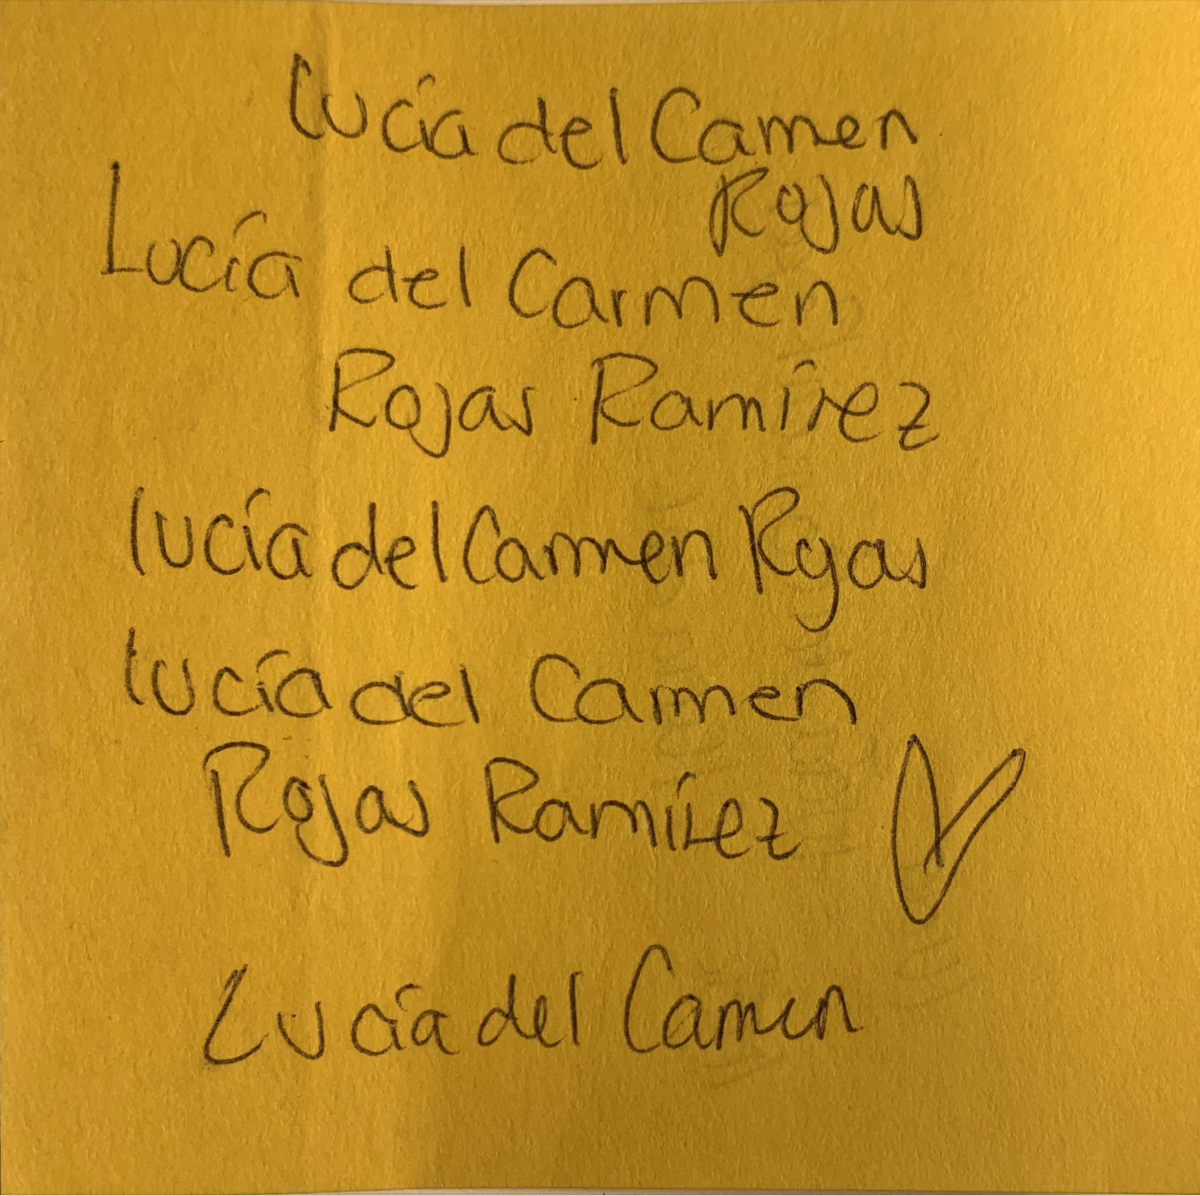 Lucía del Camen
Rojas
Lucía del Carmen
Rojas Ramírez
lucía del Carmen Rojas
lucía del Carmen
Rojas Ramírez
Lucía del Camen